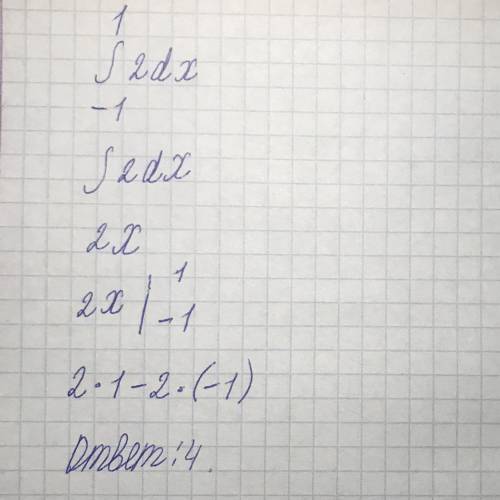 1
∫ 2dx
-1
∫ 2dx
2x
2x | 1
-1
2·1-2·(-1)
Ответ: 4.